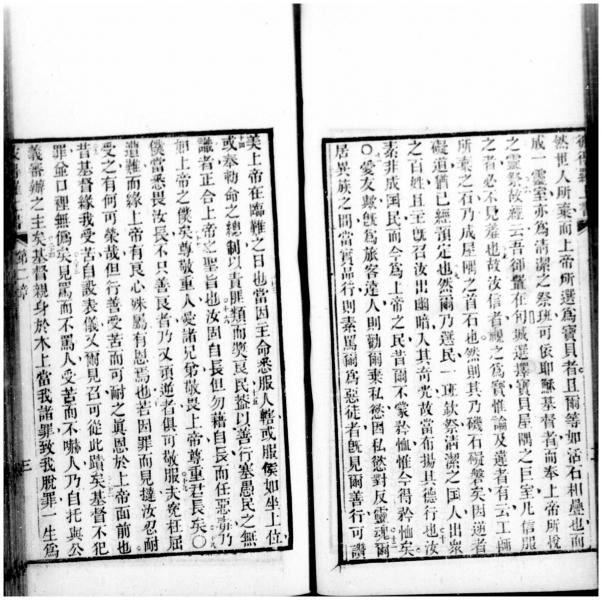 然世人所棄而上帝所選爲寶貝者且爾等如活石相疊也而
成一靈室亦爲清潔之祭班可依耶穌基督者而奉上帝所悅
之靈祭故經云吾師置在郇城選擇寶貝屋隅之巨室凡信服
之者必不見羞也故汝信者視之爲寶惟論及違者有云工師
所棄之石乃成屋隅之首石也然則其乃磯石礙磐矣因逆者
礙道猶已經預定也然爾乃選民一班欽祭清潔之國人出衆
之百姓且主旣召汝出幽暗入其奇光故當布揚其德行也汝
素非成國民而今爲上帝之民昔爾不蒙矜恤惟今得矜恤矣
○愛友歟旣爲旅客達人則勸爾棄私慾因私慾對反靈魂爾
居異族之間當實品行則素罵爾爲惡徒者旣見爾善行可讚
美上帝在臨難之日也當因王命悉服人轄或服侯如坐上位
或奉勅命之總制以責匪類而奬良民蓋以善行塞愚民之無
識者正合上帝之聖旨也汝固自長但勿藉自長而任惡毒乃
稱上帝之僕矣尊敬重人愛諸兄弟敬畏上帝尊重君長矣○
僕當悉畏汝長不只善良者乃又頭逆者俱可敬服夫寃枉屈
遭難而緣上帝有良心殊屬有恩焉也若因罪而見撻汝忍耐
受之有何可榮哉但行善受苦而可耐之眞恩於上帝面前也
昔基督緣我受苦自設表儀又爾見召可從此蹟矣基督不犯
罪並口裡無僞矣見罵而不罵人受苦而不嚇人乃自托與公
義審辦之主矣基督親身於木上當我諸罪致我脫罪一生爲
第二章
三